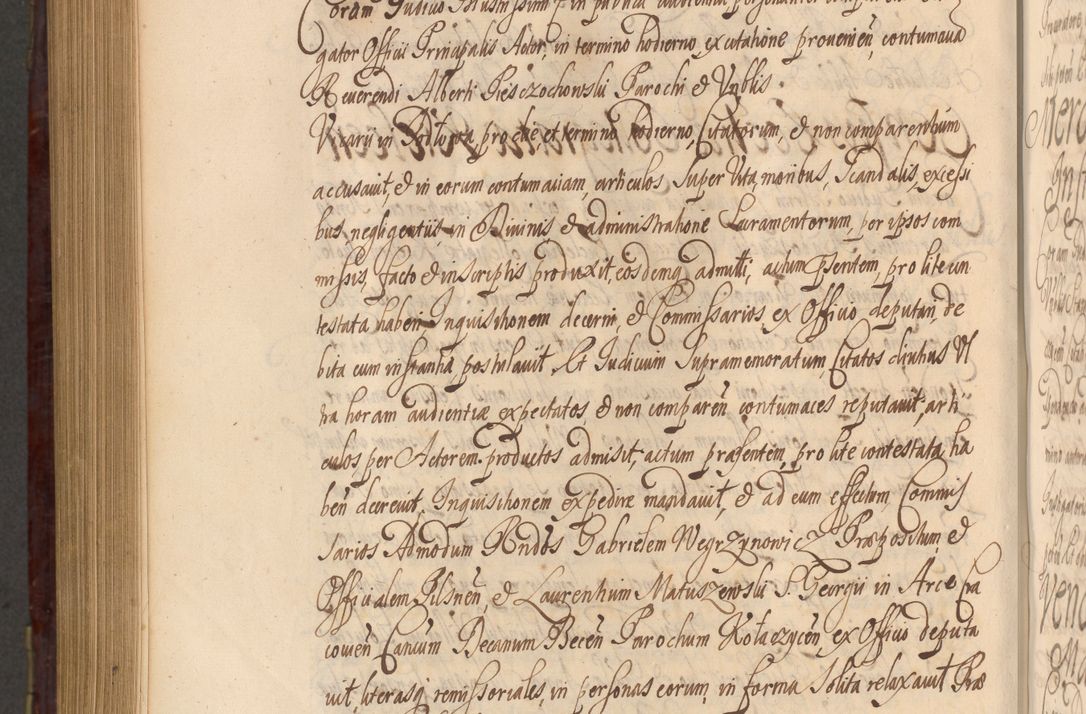 Coram Judicio Illustrissimi in publica audientia personaliter
gator Officii Principalis Actor, in termino hodierno, ex citatione provenien̄, contumacia
Reverendi Alberti Piesczochowski Parochi & Vnblis
Vicarij in pro die, et termino hodierno, Citatorum, & non comparentium
accusavit, & in eorum contumaciam, articulos super Vita, moribus, Scandalis, excessi
bus, negligentiis, in Divinis & administratione Sacramentorum, per ipsos com
missis, facto & in scriptis produxit, eosdemq admitti, actum pñtem, pro lite con
testata haberi, Inquisitionem decerni, & Commissarios ex Officio deputari, de
bita cum instantia postulavit. Et Judicium supramemoratum, Citatos diutius Vl
tra horam audientiæ expectatos & non comparen̄ contumaces reputavit, arti
culos per Actorem productos admisit, actum præsentem, pro lite contestata ha
beri decrevit, Inquisitionem expedire mandavit, & ad eum effectum Commis
sarios Admodum Rndos Gabrielem Wegrzynowicz Præpositum &
Officialem Pilsnen̄, & Laurentium Matuszewski S. Georgii in Arce Cra
covien̄ Cancum Decanum Becen̄ Parochum Kołaczycen̄, ex Officio deputa
vit, literasq remissoriales, in personas eorum, in forma Solita relaxavit Præ